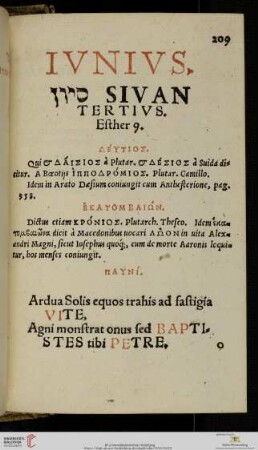 209
IVNIVS.
סיון SIVAN
TERTIVS.
Esther 9.
ΔΕΎΤΙΟΣ.
Qui & ΔΆΙΣΙΟΣ à Plutar. & ΔΈΣΙΟΣ à Suida di-
citur. A Bœotijs ἹΠΠΟΔΡΌΜΙΟΣ. Plutar. Camillo.
Idem in Arato Dæsium coniungit cum Anthesterione, pag.
ἙΚΑΤΟΜΒΑΙΏΝ.
Dictus etiam ΚΡΌΝΙΟΣ. Plutarch. Theseo. Idem
dicit à Macedonibus vocari ΛΩΟΝ vita Alex-
andri Magni, sicut Iosephus quoq;, cum de morte Aaronis loqui-
tur, hos menses coniungit.
ΠΑΥΝΊ.
Ardua Solis equos trahis ad fastigia
VITE,
Agni monstrat onus sed BAPTI-
STES tibi PETRE.
o